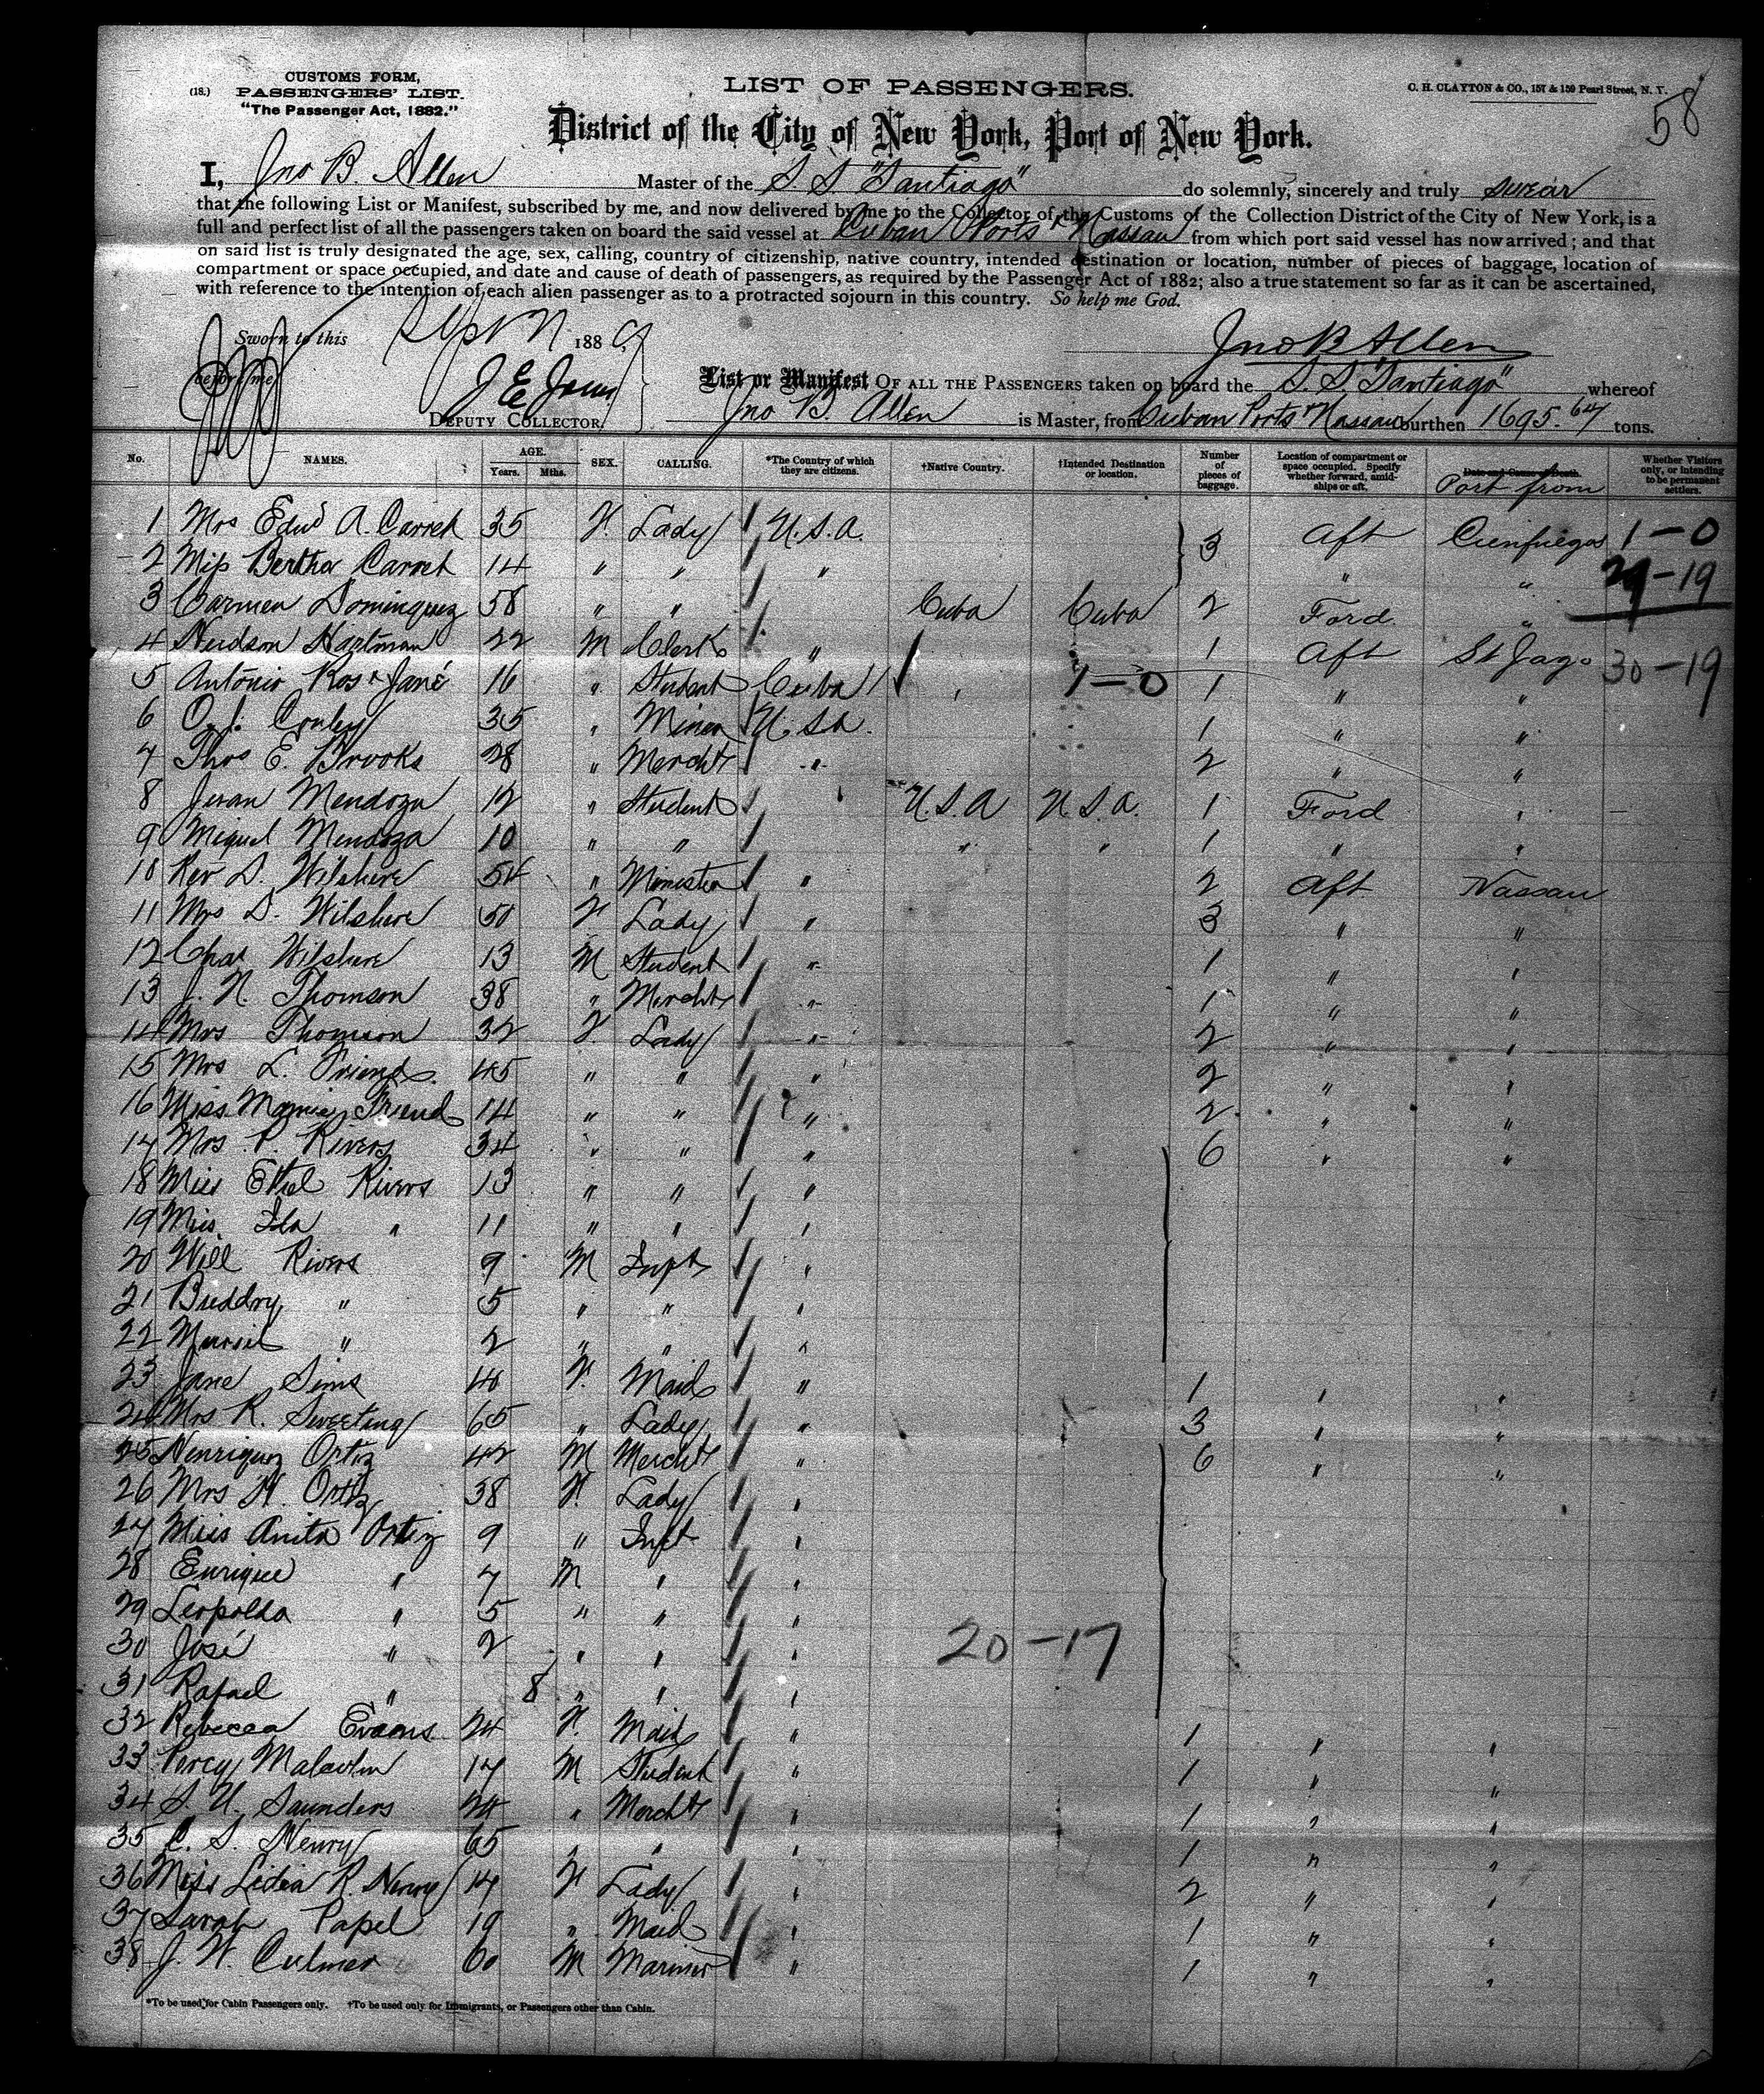 CUSTOMS FORM,
(18.) PASSENGERS' LIST.
"The Passenger Act, 1882."
LIST OF PASSENGERS.
C. H. CLAYTON & CO., 157 & 159 Pearl Street, N. Y.
58
District of the City of New York, Port of New York.
I, Jno B. Allen Master of the S. S "Santiago" do solemnly, sincerely and truly swear
that the following List or Manifest, subscribed by me, and now delivered by me to the Collector of the Customs of the Collection District of the City of New York, is a
full and perfect list of all the passengers taken on board the said vessel at Cuban Ports & Nassau from which port said vessel has now arrived; and that
on said list is truly designated the age, sex, calling, country of citizenship, native country, intended destination or location, number of pieces of baggage, location of
compartment or space occupied, and date and cause of death of passengers, as required by the Passenger Act of 1882; also a true statement so far as it can be ascertained,
with reference to the intention of each alien passenger as to a protracted sojourn in this country. So help me God.
Sworn to this 1889
Jno B Allen
before me
DEPUTY COLLECTOR.
List or Manifest OF ALL THE PASSENGERS taken on board the S. S. "Santiago" whereof
Jno B. Allen is Master, from Cuban Ports & Nassau burthen 1695. 64 tons.
No. NAMES. AGE. Years. Mths. SEX. CALLING. *The Country of which they are citizens. †Native Country. †Intended Destination or location. Number of pieces of baggage. Location of compartment or space occupied. Specify whether forward, amidships or aft. Date and Cause of Death. Port from Whether Visitors only, or intending to be permanent settlers.
1 Mrs Edwd A. Carret 35 F. Lady U.S.A. 3 Aft Cienfuegos 1-0
2 Miss Bertha Carret 14 " " " " " 29-19
3 Carmen Dominquez 58 " " Cuba Cuba 2 Ford "
4 Hudson Hartman 22 M Clerk " 1 Aft St Jago 30-19
5 Antonio Ros & Jané 16 " Student Cuba 1-0 1 " "
6 Conley 35 " Miner U.S.A. 1 " "
7 Thos E. Brooks 28 " Mercht " 2 " "
8 Juan Mendoza 12 " Student U.S.A U.S.A. 1 Ford "
9 Miguel Mendoza 10 " " " " 1 " "
10 Rev D. Wilshire 54 " Minister " 2 Aft Nassau
11 Mrs D. Wilshire 50 F Lady " 3 " "
12 Chas Wilshire 13 M Student " 1 " "
13 J. N. Thomson 38 " Mercht " 1 " "
14 Mrs Thomson 32 F. Lady " 2 " "
15 Mrs L. Friend 45 " " " 2 " "
16 Miss Mamie Friend 14 " " " 2 " "
17 Mrs P. Rivers 34 " " " 6 " "
18 Miss Ethel Rivers 13 " " "
19 Miss Ila " 11 " " "
20 Will Rivers 9 M Inft "
21 Buddry " 5 " " "
22 " 2 " " "
23 Jane Sims 40 F. Maid " 1 " "
24 Mrs R. Sweeting 65 " Lady " 3 " "
25 Henriquez Ortiz 42 M Mercht " 6 " "
26 Mrs H. Ortiz 38 F. Lady "
27 Miss Anita Ortiz 9 " Inft "
28 Enrique " 7 M " "
29 Leopoldo " 5 " " "
30 José " 2 " " " 20-17
31 Rafael " 8 " " "
32 Rebecca Evans 24 F. Maid " 1 " "
33 Percy Malcolm 17 M Student " 1 " "
34 S. U. Saunders 24 " Mercht " 1 " "
35 C. S. Henry 65 " " " 1 " "
36 Miss Lidia R. Henry F Lady " 2 " "
37 Sarah Papel 19 " Maid " 1 " "
38 J. W. Culmer 60 M Mariner " 1 " "
*To be used for Cabin Passengers only. †To be used only for Immigrants, or Passengers other than Cabin.